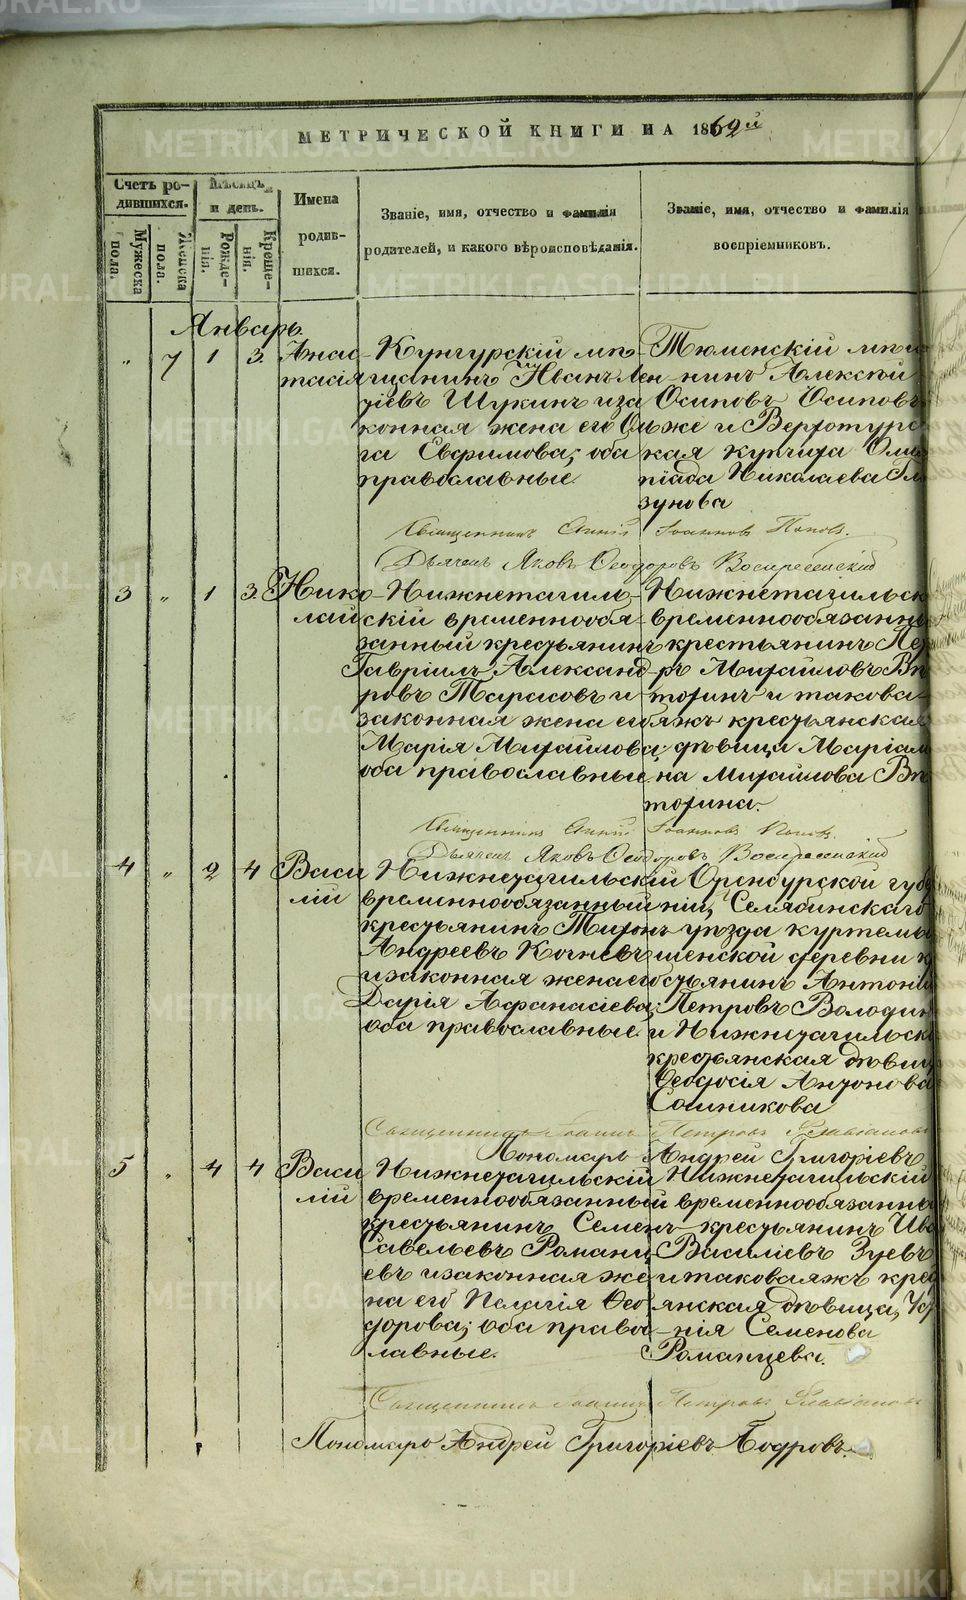 МЕТРИЧЕСКОЙ КНИГИ НА 1862й
Счетъ ро-
дившихся.
Мужеска пола.
Женска пола.
Мѣсяцъ
и день.
Рожде-
нія.
Креще-
нія.
Имена
родив-
шихся.
Званіе, имя, отчество и фамилія
родителей, и какого вѣроисповѣданія.
Званіе, имя, отчество и фамилія
воспріемниковъ.
Январь.
" 7 1 3. Анас-
тасія
Кунгурскій мѣ-
щанинъ Иванъ Ален-
діевъ Щукинъ и за
конная жена его Оль
га Евфимова; оба
православные
Тюменскій мѣщ
нинъ Алексѣй
Осиповъ Осиповъ
же и Верхотурс
кая купчиха Олим
піада Николаева Гла
зунова
Священникъ Іоанновъ Поповъ.
Дьячекъ Яковъ Ѳеодоровъ Воскресенскій
3 " 1 3. Нико-
лай
Нижнетагиль-
скій временнообя-
занный крестьянинъ
Гавріилъ Александ-
ровъ Тарасовъ и
законная жена его
Марія Михайлова;
оба православные
Нижнетагильск
временнообязанны
крестьянинъ Пет
ръ Михайловъ Вп
торинъ и такова-
яжъ крестьянская
дѣвица Маріам
на Михайлова Вп
торина.
Священникъ Іоанновъ Поповъ.
Дьячекъ Яковъ Ѳеодоровъ Воскресенскій
4 " 2 4 Васи
лій
Нижнетагильскій
временнообязанный
крестьянинъ Тихонъ
Андреевъ Кочневъ
и законная жена его
Дарія Афанасіева;
оба православные.
Оренбурской губе
ніи, Селябинскаго
уѣзда Куртемы
шенской деревни к
стьянинъ Антоній
Петровъ Володин
и Нижнетагильск
крестьянская дѣвиц
Ѳеодосія Антонова
Сошникова
Священникъ Іоаннъ Петровъ Флавіановъ
Пономарь Андрей Григоріевъ
5 " 4 4 Васи
лій
Нижнетагильскій
временнообязанный
крестьянинъ Семенъ
Савельевъ Романц
евъ и законная же
на его Пелагія Ѳео
дорова; оба правос
лавные.
Нижнетагильскій
временнообязанны
крестьянинъ Ива
Василіевъ Зуевъ
и таковаяжъ крес
янская дѣвица,
нія Семенова
Романцева.
Священникъ Іоаннъ Петровъ Флавіановъ
Пономарь Андрей Григоріевъ Бодровъ.
METRIKI.GASO-URAL.RU